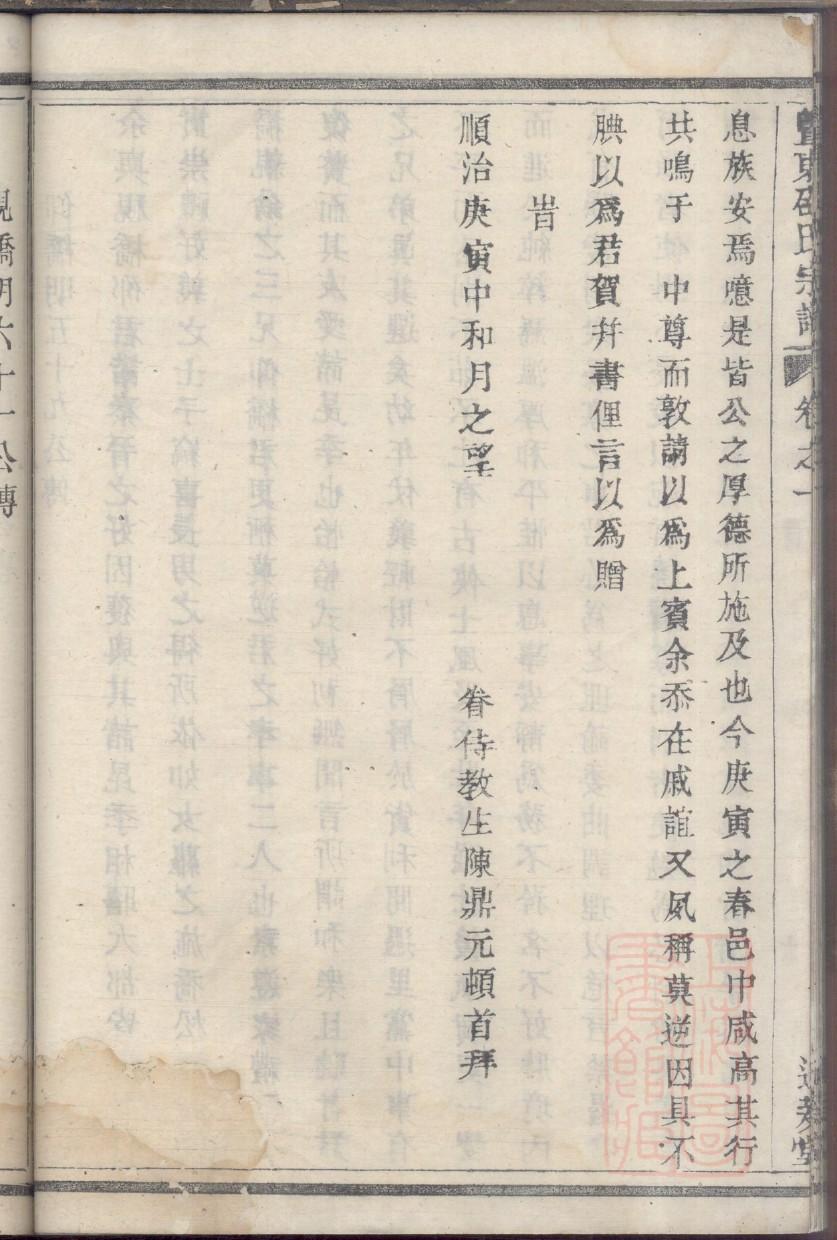 暨東邵氏宗譜 卷之一
息族安焉噫是皆公之厚德所施及也今庚寅之春邑中咸高其行
共鳴于 中尊而敦請以爲上賓余忝在戚誼又夙稱莫逆因具不
腆以爲君賀幷書俚言以爲贈
旹
順治庚寅中和月之望 眷侍教生陳鼎元頓首拜
硯橋朋六十一公傳